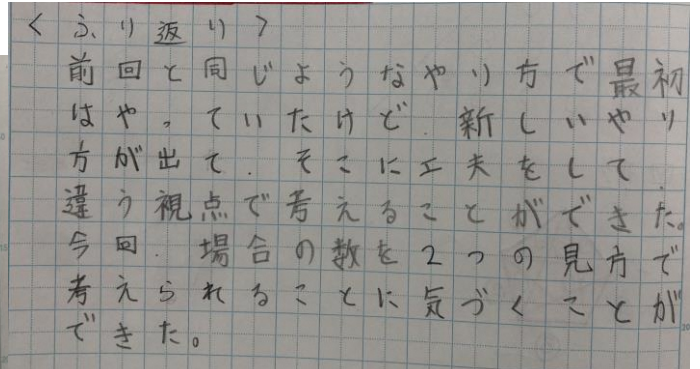 ＜ふり返り＞
前回と同じようなやり方で最初
はやっていたけど、新しいやり
方が出て、そこに工夫をして、
違う視点で考えることができた。
今回、場合の数を2つの見方で
考えられることに気づくことが
できた。